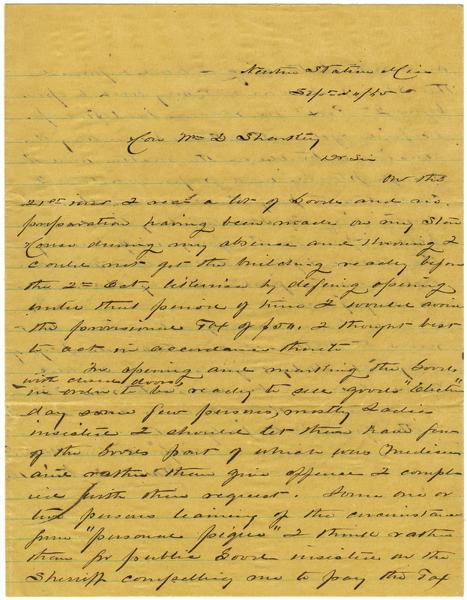 Newton Station Miss
Sept 24/65
Gov Wm L Sharkey
Dr Sir
On the
21st inst I recd a lot of Goods and no
preparation having been made on my Store
House during my absence and thinking I
could not get the building ready before
the 2nd Oct, likewise by defering opening
until that period of time I would avoid
the provisional Tax of I thought best
to act in accordance thereto
In opening and marking the Goods
with closed doors
in order to be ready to sell goods "Election"
day some few persons, mostly Ladies
insisted I should let them have few
of the Goods part of which was Medicine
and rather than give offence I compl
ied with their request. Some one or
two persons learning of the circumstance
from "personal pique" I think rather
than for public Good insisted on the
Sherriff compelling me to pay the Tax